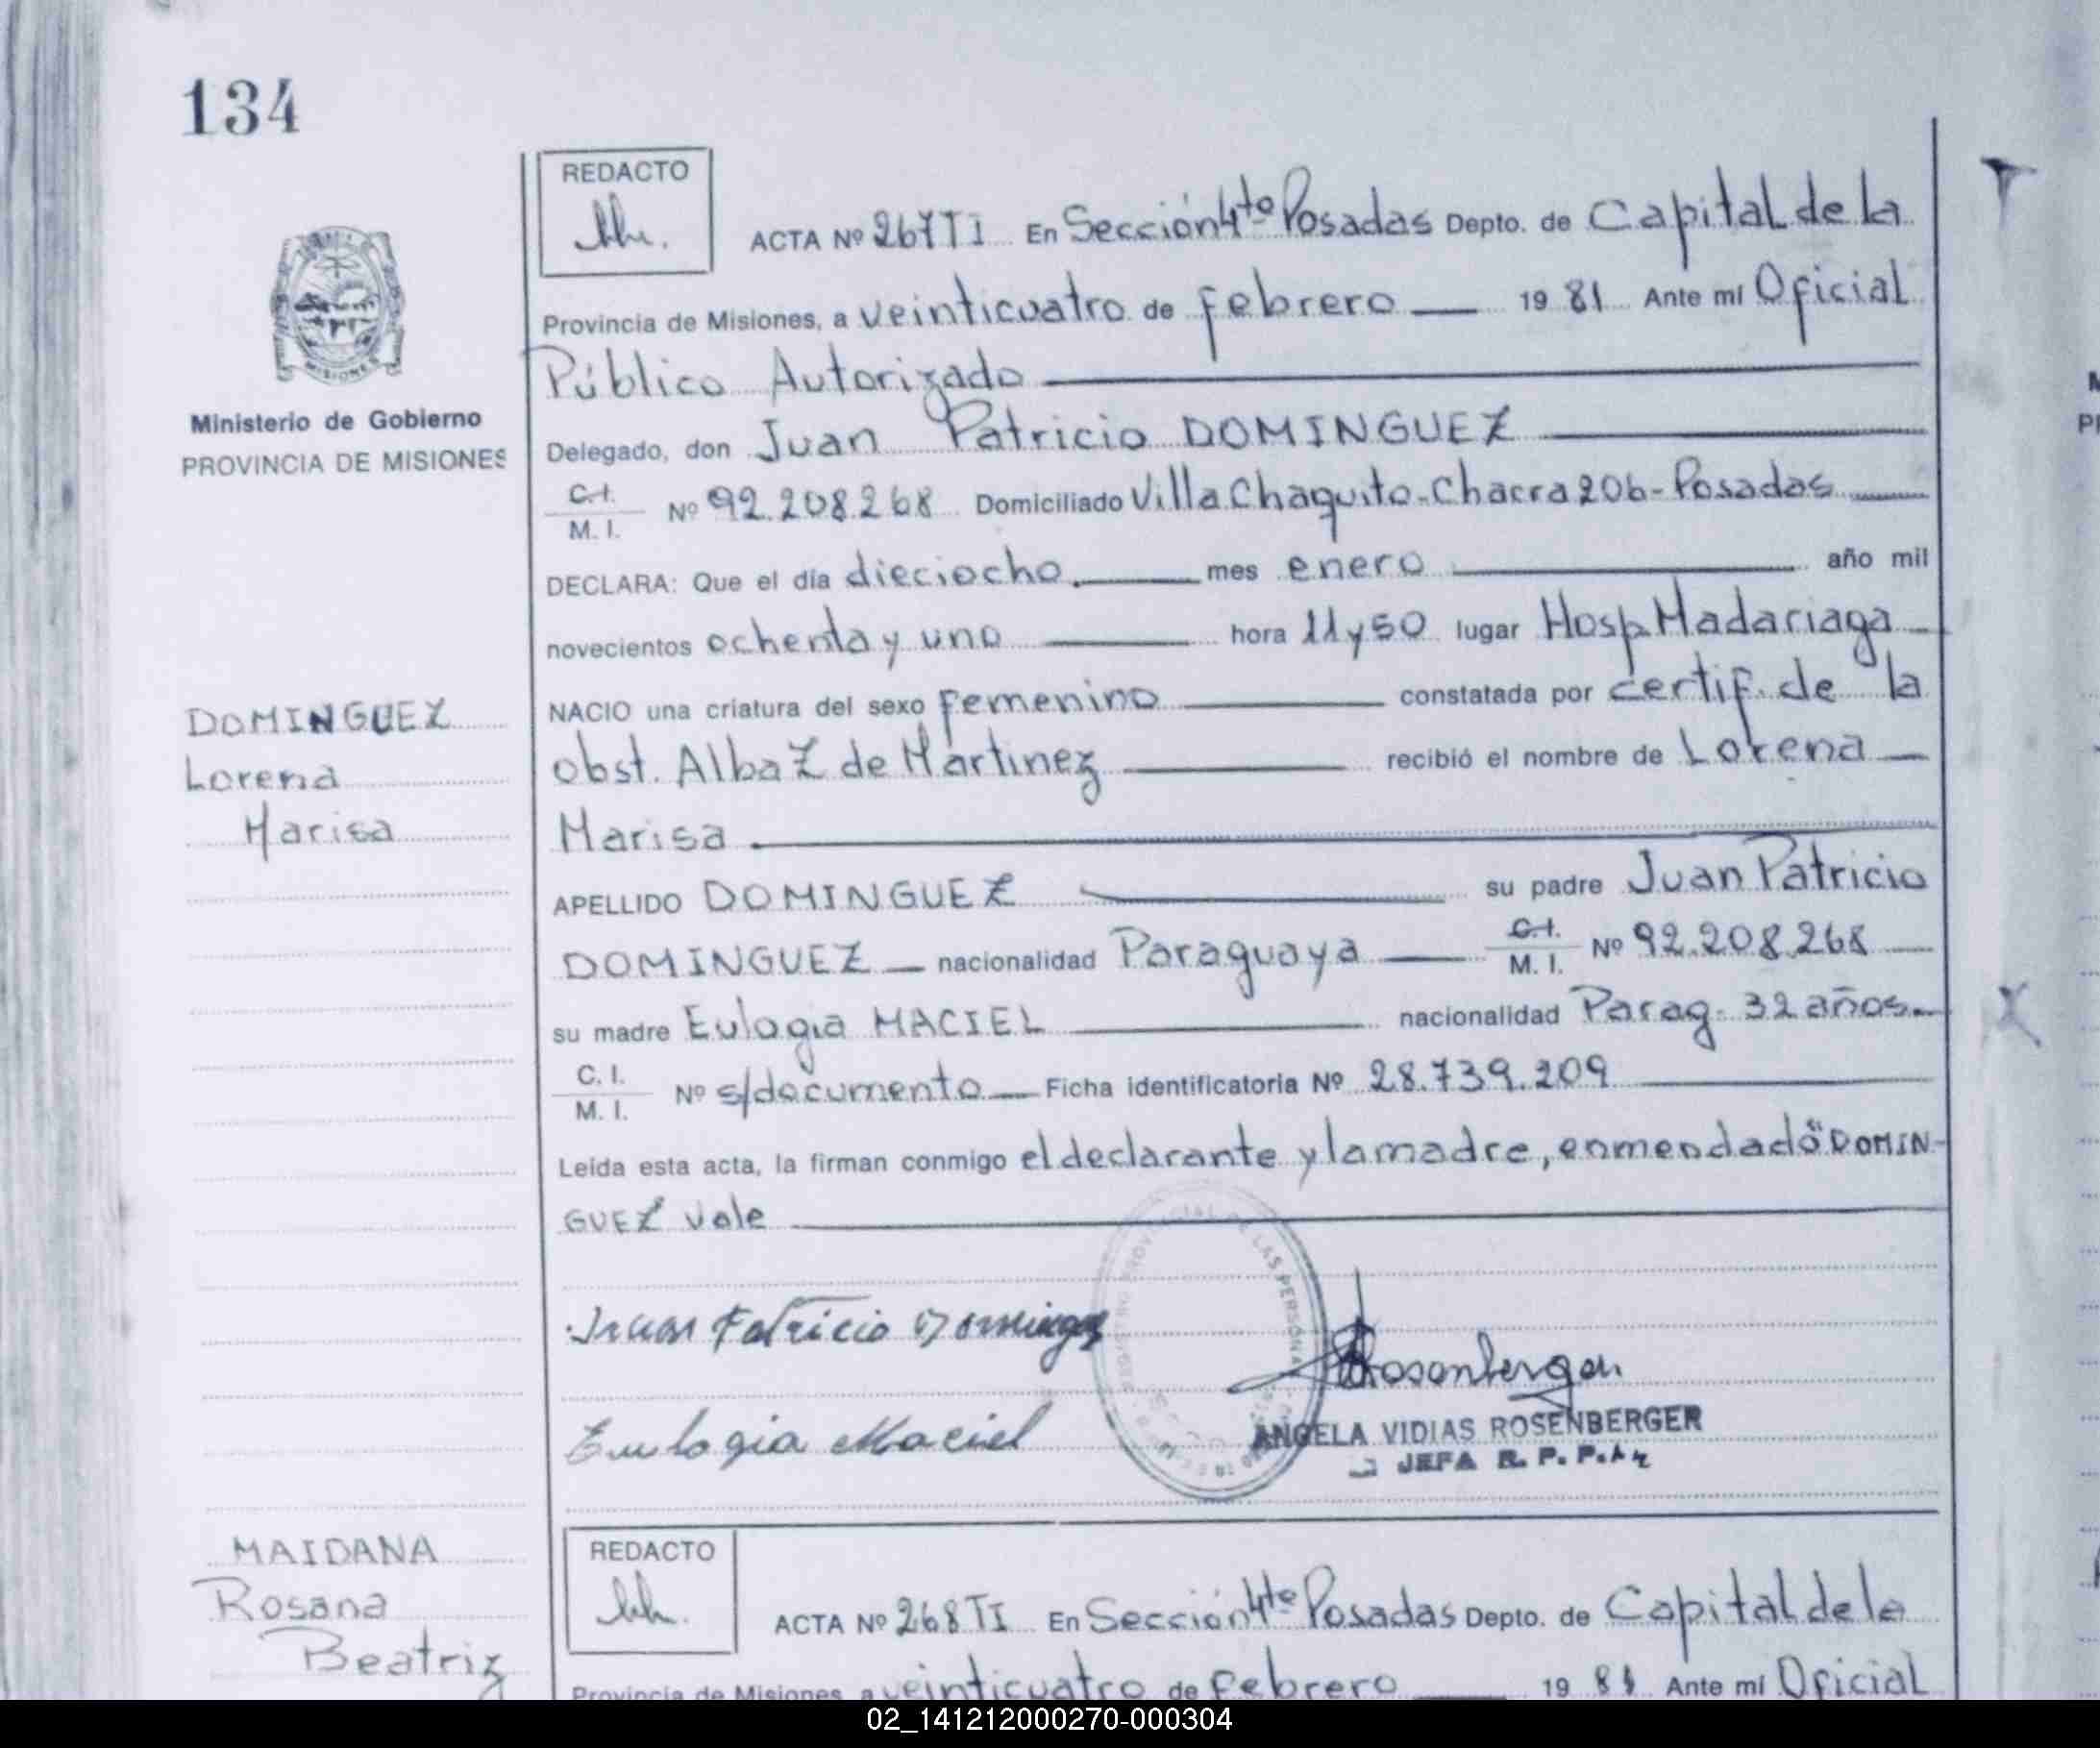 134
REDACTO
ACTA Nº 267 TI En Sección 4ta Posadas Depto. de Capital de la
Provincia de Misiones, a veinticuatro de febrero 19 81 Ante mí Oficial
Público Autorizado
Delegado, don Juan Patricio DOMINGUEZ
C.I.
M. I. Nº 92.208.268 Domiciliado Villa Chaquito-Chacra 206-Posadas
DECLARA: Que el día dieciocho mes enero año mil
novecientos ochenta y uno hora 11 y 50 lugar Hosp. Madariaga
NACIO una criatura del sexo femenino constatada por certif. de la
obst. Alba Z de Martinez recibió el nombre de Lorena
Marisa
APELLIDO DOMINGUEZ su padre Juan Patricio
DOMINGUEZ nacionalidad Paraguaya C.I.
M. I. Nº 92.208.268
su madre Eulogia MACIEL nacionalidad Parag. 32 años
C. I.
M. I. Nº s/documento Ficha identificatoria Nº 28.739.209
Leída esta acta, la firman conmigo el declarante y la madre, enmendado "DOMIN-
GUEZ vale
Juan Patricio Dominguez
Rosenberger
Eulogia Maciel
ANGELA VIDIAS ROSENBERGER
JEFA R. P. P.
Ministerio de Gobierno
PROVINCIA DE MISIONES
DOMINGUEZ
Lorena
Marisa
MAIDANA
Rosana
Beatriz
REDACTO
ACTA Nº 268 TI En Sección 4ta Posadas Depto. de Capital de la
Provincia de Misiones, a veinticuatro de febrero 19 81 Ante mí Oficial
02_141212000270-000304